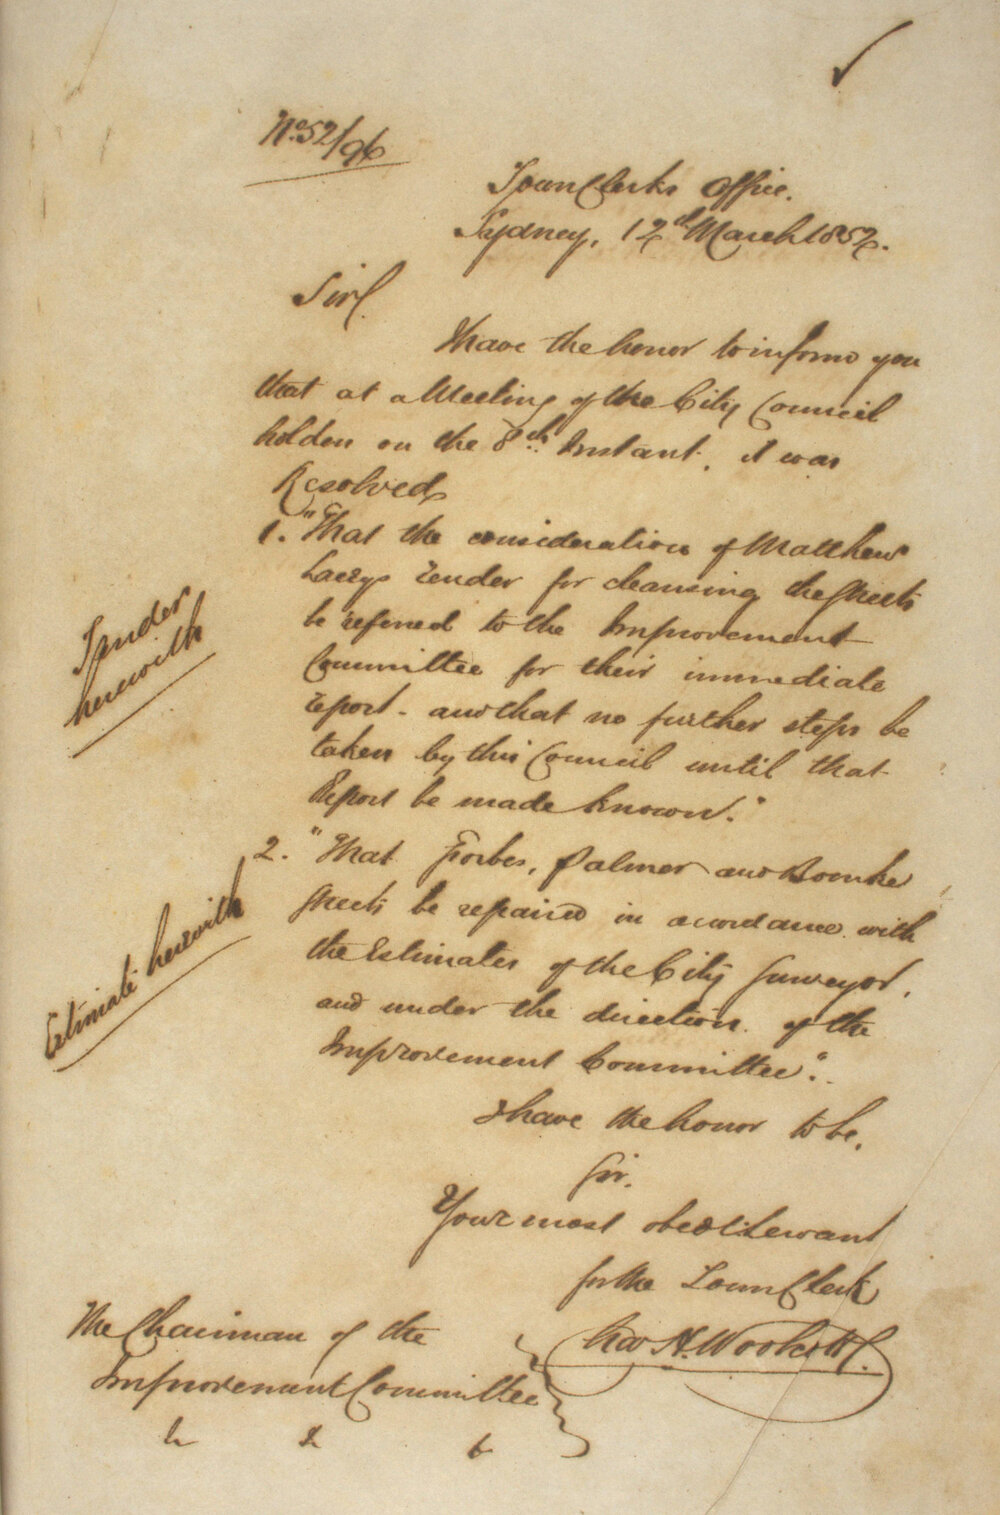 No. 52/96
Town Clerks Office.
Sydney, 12th March 1852.
Sir,
I have the honor to inform you
that at a Meeting of the City Council
holden on the 8th Instant, it was
Resolved
1. "That the consideration of Matthew
Laceys Tender for cleansing the Streets
be referred to the Improvement
Committee for their immediate
report - and that no further steps be
taken by this Council until that
Report be made known."
Tender
herewith
2. "That Forbes, Palmer and Bourke
Streets be repaired in acordance with
the Estimates of the City Surveyor,
and under the direction of the
Improvement Committee".
Estimate herewith
I have the honor to be,
Sir,
Your most obedt Servant
for the Town Clerk
Chas H. Woolcott
The Chairman of the
Improvement Committee